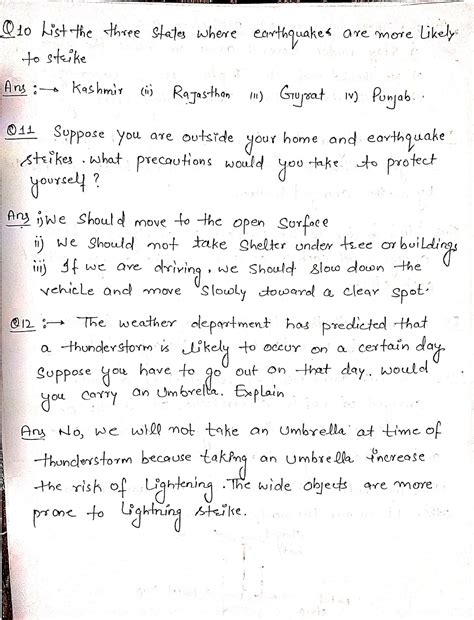 Q10 List the three States where earthquakes are more likely
to strike
Ans :→ Kashmir (ii) Rajasthan iii) Gujrat iv) Punjab.
Q11 Suppose you are outside your home and earthquake
strikes. What precautions would you take to protect
yourself?
Ans i) We should move to the open surface
ii) We should not take shelter under tree or buildings
iii) If we are driving, we should slow down the
vehicle and move slowly toward a clear spot.
Q12 :→ The weather department has predicted that
a thunderstorm is likely to occur on a certain day.
Suppose you have to go out on that day. Would
you carry an umbrella. Explain
Ans No, we will not take an umbrella at time of
thunderstorm because taking an umbrella increase
the risk of Lightening. The wide objects are more
prone to Lightning strike.